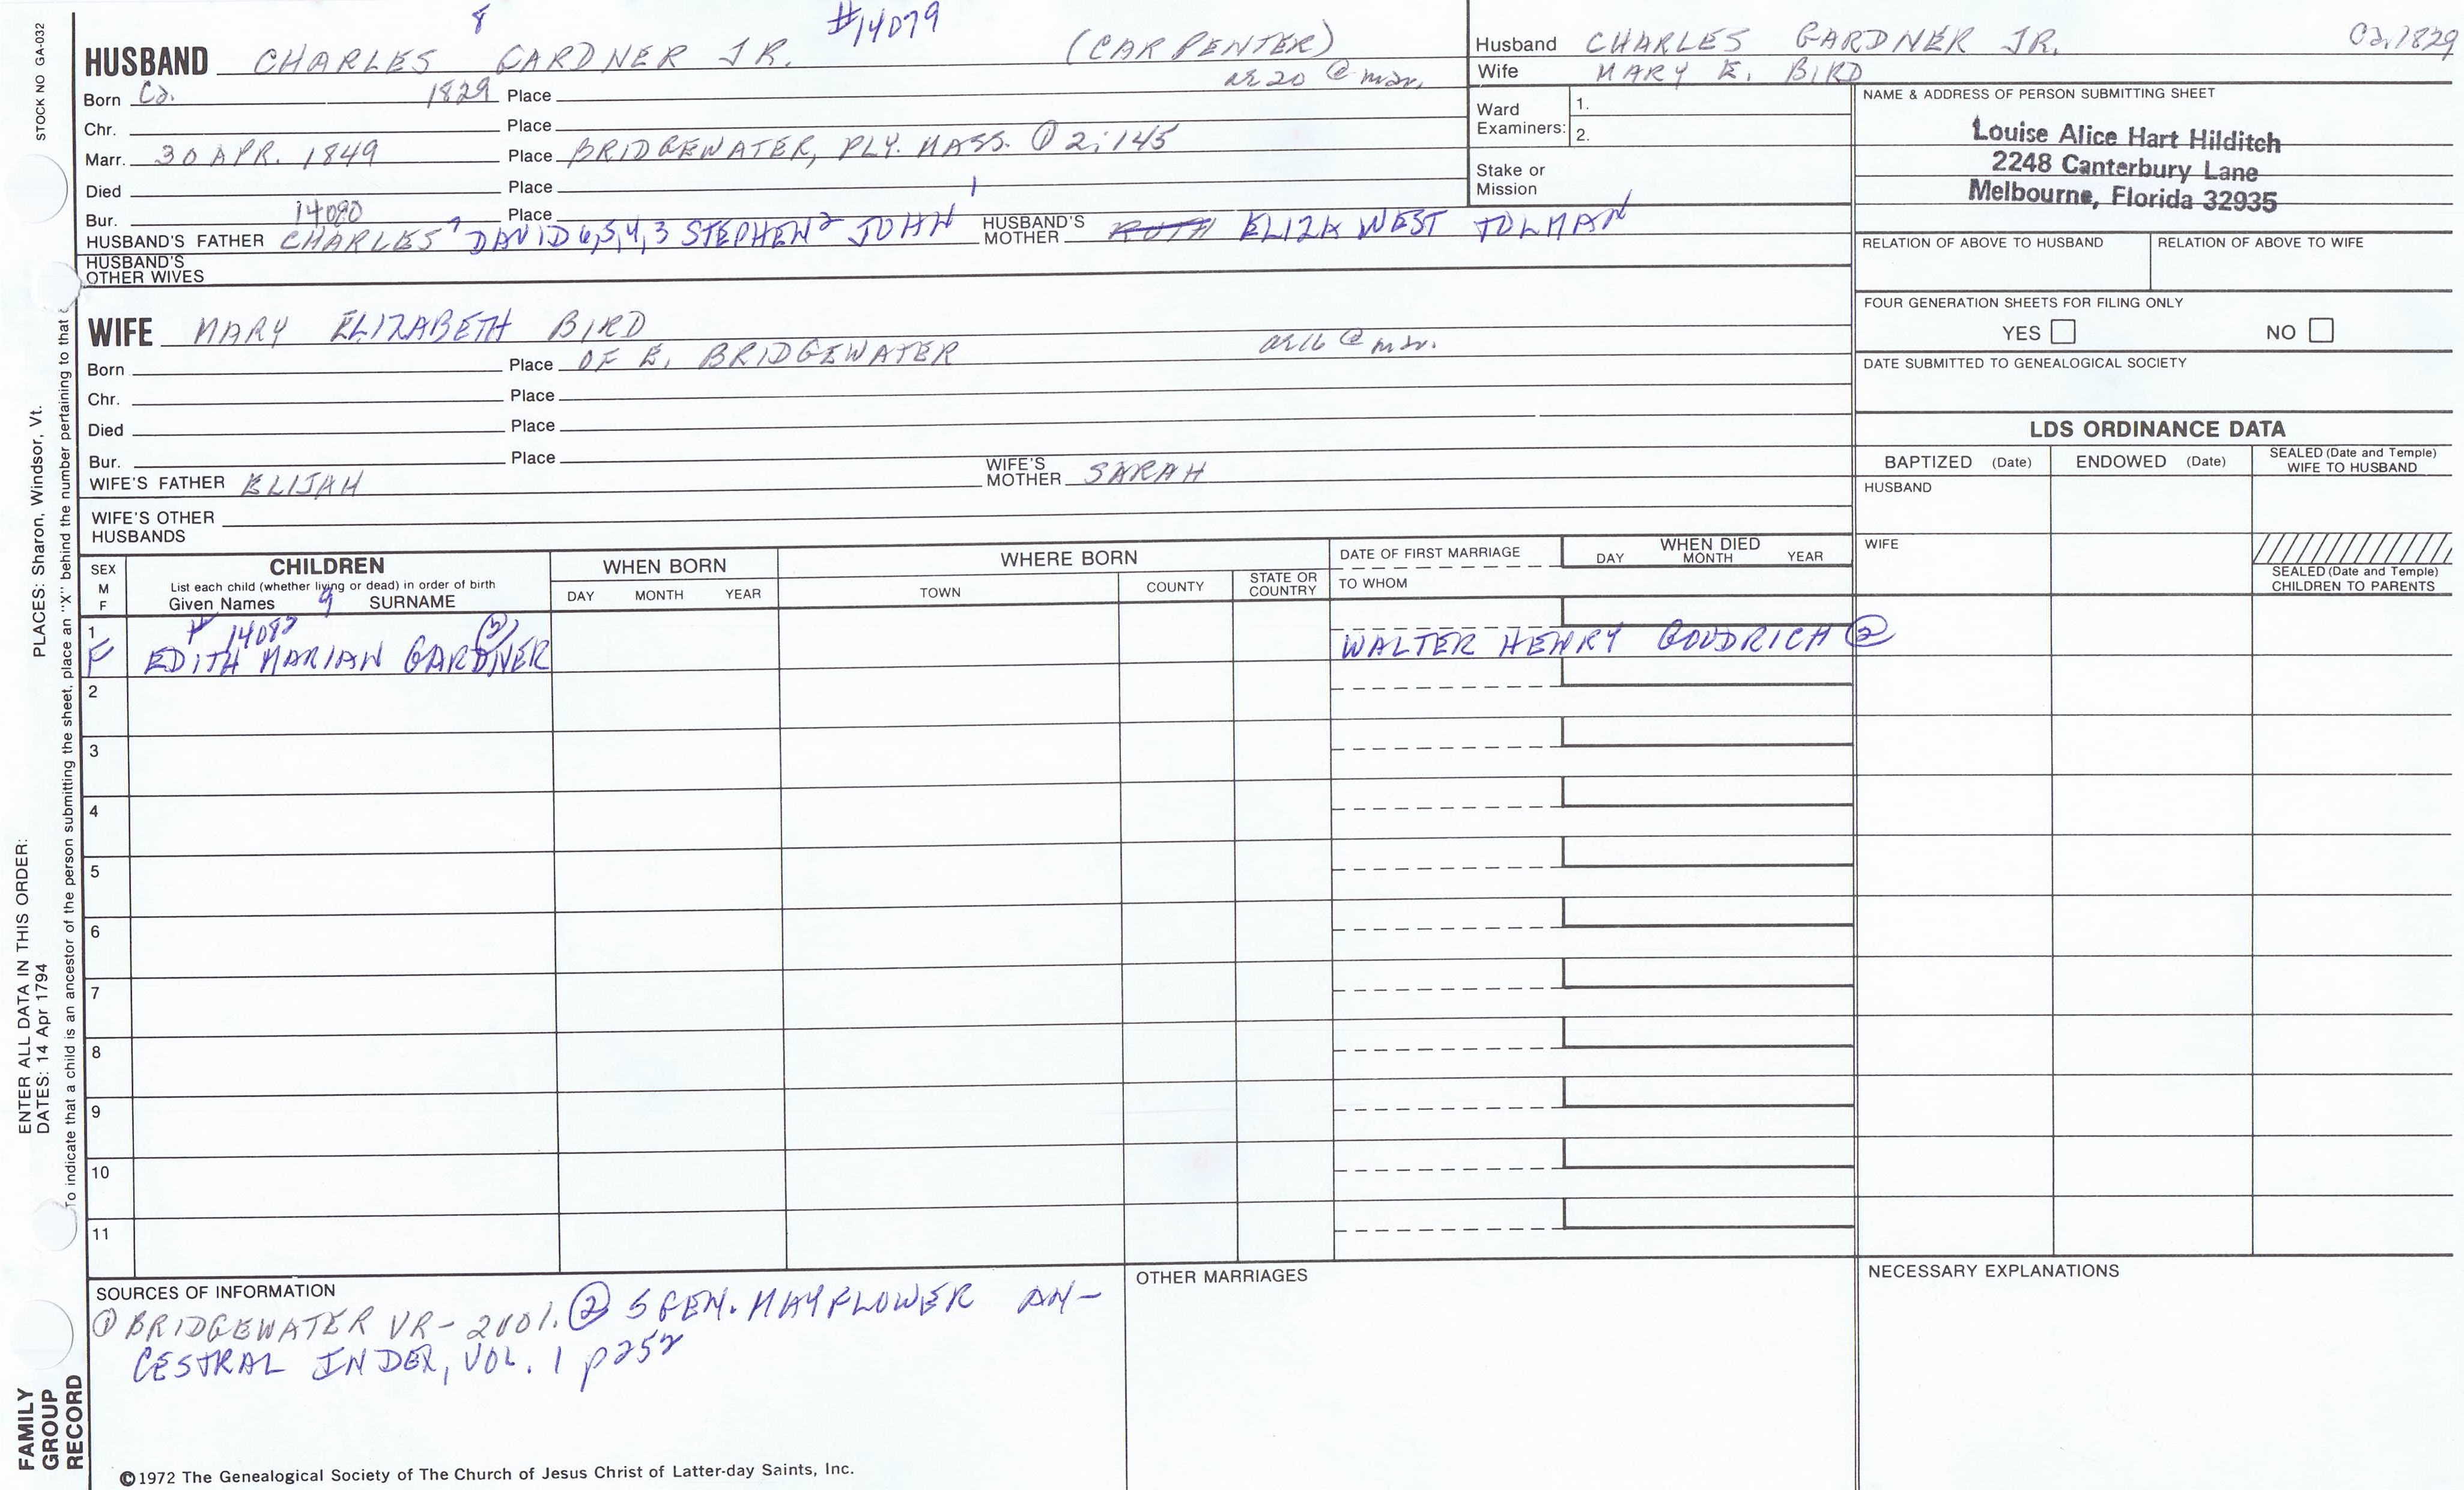 STOCK NO GA-032
PLACES: Sharon, Windsor, Vt.
ENTER ALL DATA IN THIS ORDER:
DATES: 14 Apr 1794
To indicate that a child is an ancestor of the person submitting the sheet, place an "X" behind the number pertaining to that
FAMILY GROUP RECORD
8 #14079
HUSBAND CHARLES GARDNER JR. (CARPENTER)
Born Ca. 1829 Place ae 20 @ mar.
Chr. Place
Marr. 30 APR. 1849 Place BRIDGEWATER, PLY. MASS. ① 2:145
Died Place
Bur. 14080 Place
HUSBAND'S FATHER CHARLES 7 DAVID 6,5,4,3 STEPHEN 2 JOHN 1 HUSBAND'S MOTHER ~~RUTH~~ ELIZA WEST TOLMAN
HUSBAND'S OTHER WIVES
WIFE MARY ELIZABETH BIRD
Born Place OF E. BRIDGEWATER ae 16 @ mar.
Chr. Place
Died Place
Bur. Place
WIFE'S FATHER ELIJAH WIFE'S MOTHER SARAH
WIFE'S OTHER HUSBANDS
Husband CHARLES GARDNER JR. Ca. 1829
Wife MARY E. BIRD
Ward Examiners: 1.
2.
Stake or Mission
NAME & ADDRESS OF PERSON SUBMITTING SHEET
Louise Alice Hart Hilditch
2248 Canterbury Lane
Melbourne, Florida 32935
RELATION OF ABOVE TO HUSBAND RELATION OF ABOVE TO WIFE
FOUR GENERATION SHEETS FOR FILING ONLY
YES NO
DATE SUBMITTED TO GENEALOGICAL SOCIETY
LDS ORDINANCE DATA
BAPTIZED (Date) ENDOWED (Date) SEALED (Date and Temple) WIFE TO HUSBAND
HUSBAND
WIFE
SEALED (Date and Temple) CHILDREN TO PARENTS
SEX M F
CHILDREN
List each child (whether living or dead) in order of birth
Given Names 9 SURNAME
WHEN BORN
DAY MONTH YEAR
WHERE BORN
TOWN COUNTY STATE OR COUNTRY
DATE OF FIRST MARRIAGE
TO WHOM
WHEN DIED
DAY MONTH YEAR
1 # 14082 ②
F EDITH MARIAN GARDNER WALTER HENRY GOODRICH ②
2
3
4
5
6
7
8
9
10
11
SOURCES OF INFORMATION
① BRIDGEWATER VR- 2vol. ② 5 GEN. MAYFLOWER AN-
CESTRAL INDEX, VOL. 1 p252
OTHER MARRIAGES
NECESSARY EXPLANATIONS
©1972 The Genealogical Society of The Church of Jesus Christ of Latter-day Saints, Inc.